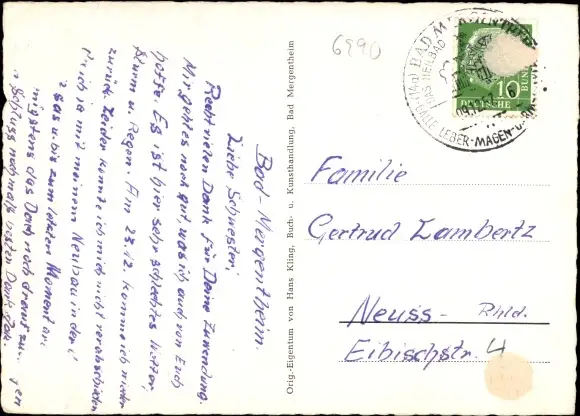 Bad-Mergentheim.
Liebe Schwester,
Recht vielen Dank für Deine Zuwendung.
Mir geht es noch gut, was ich auch von Euch
hoffe. Es ist hier sehr schlechtes Wetter,
Sturm u. Regen. Am 23.12. komme ich wieder
zurück. Leider konnte ich mich nicht verabschieden
ich ja mit meinem Neubau in den
bis zum letzten Moment
das Dach noch drauf
Schluss nochmals besten Dank
Orig.-Eigentum von Hans Kling, Buch- u. Kunsthandlung, Bad Mergentheim
6990
(14a) BAD MERGENTHEIM
DAS HEILBAD
GALLE-LEBER-MAGEN-U.
10
DEUTSCHE BUN
Familie
Gertrud Lambertz
Neuss- Rhld.
Eibischstr. 4